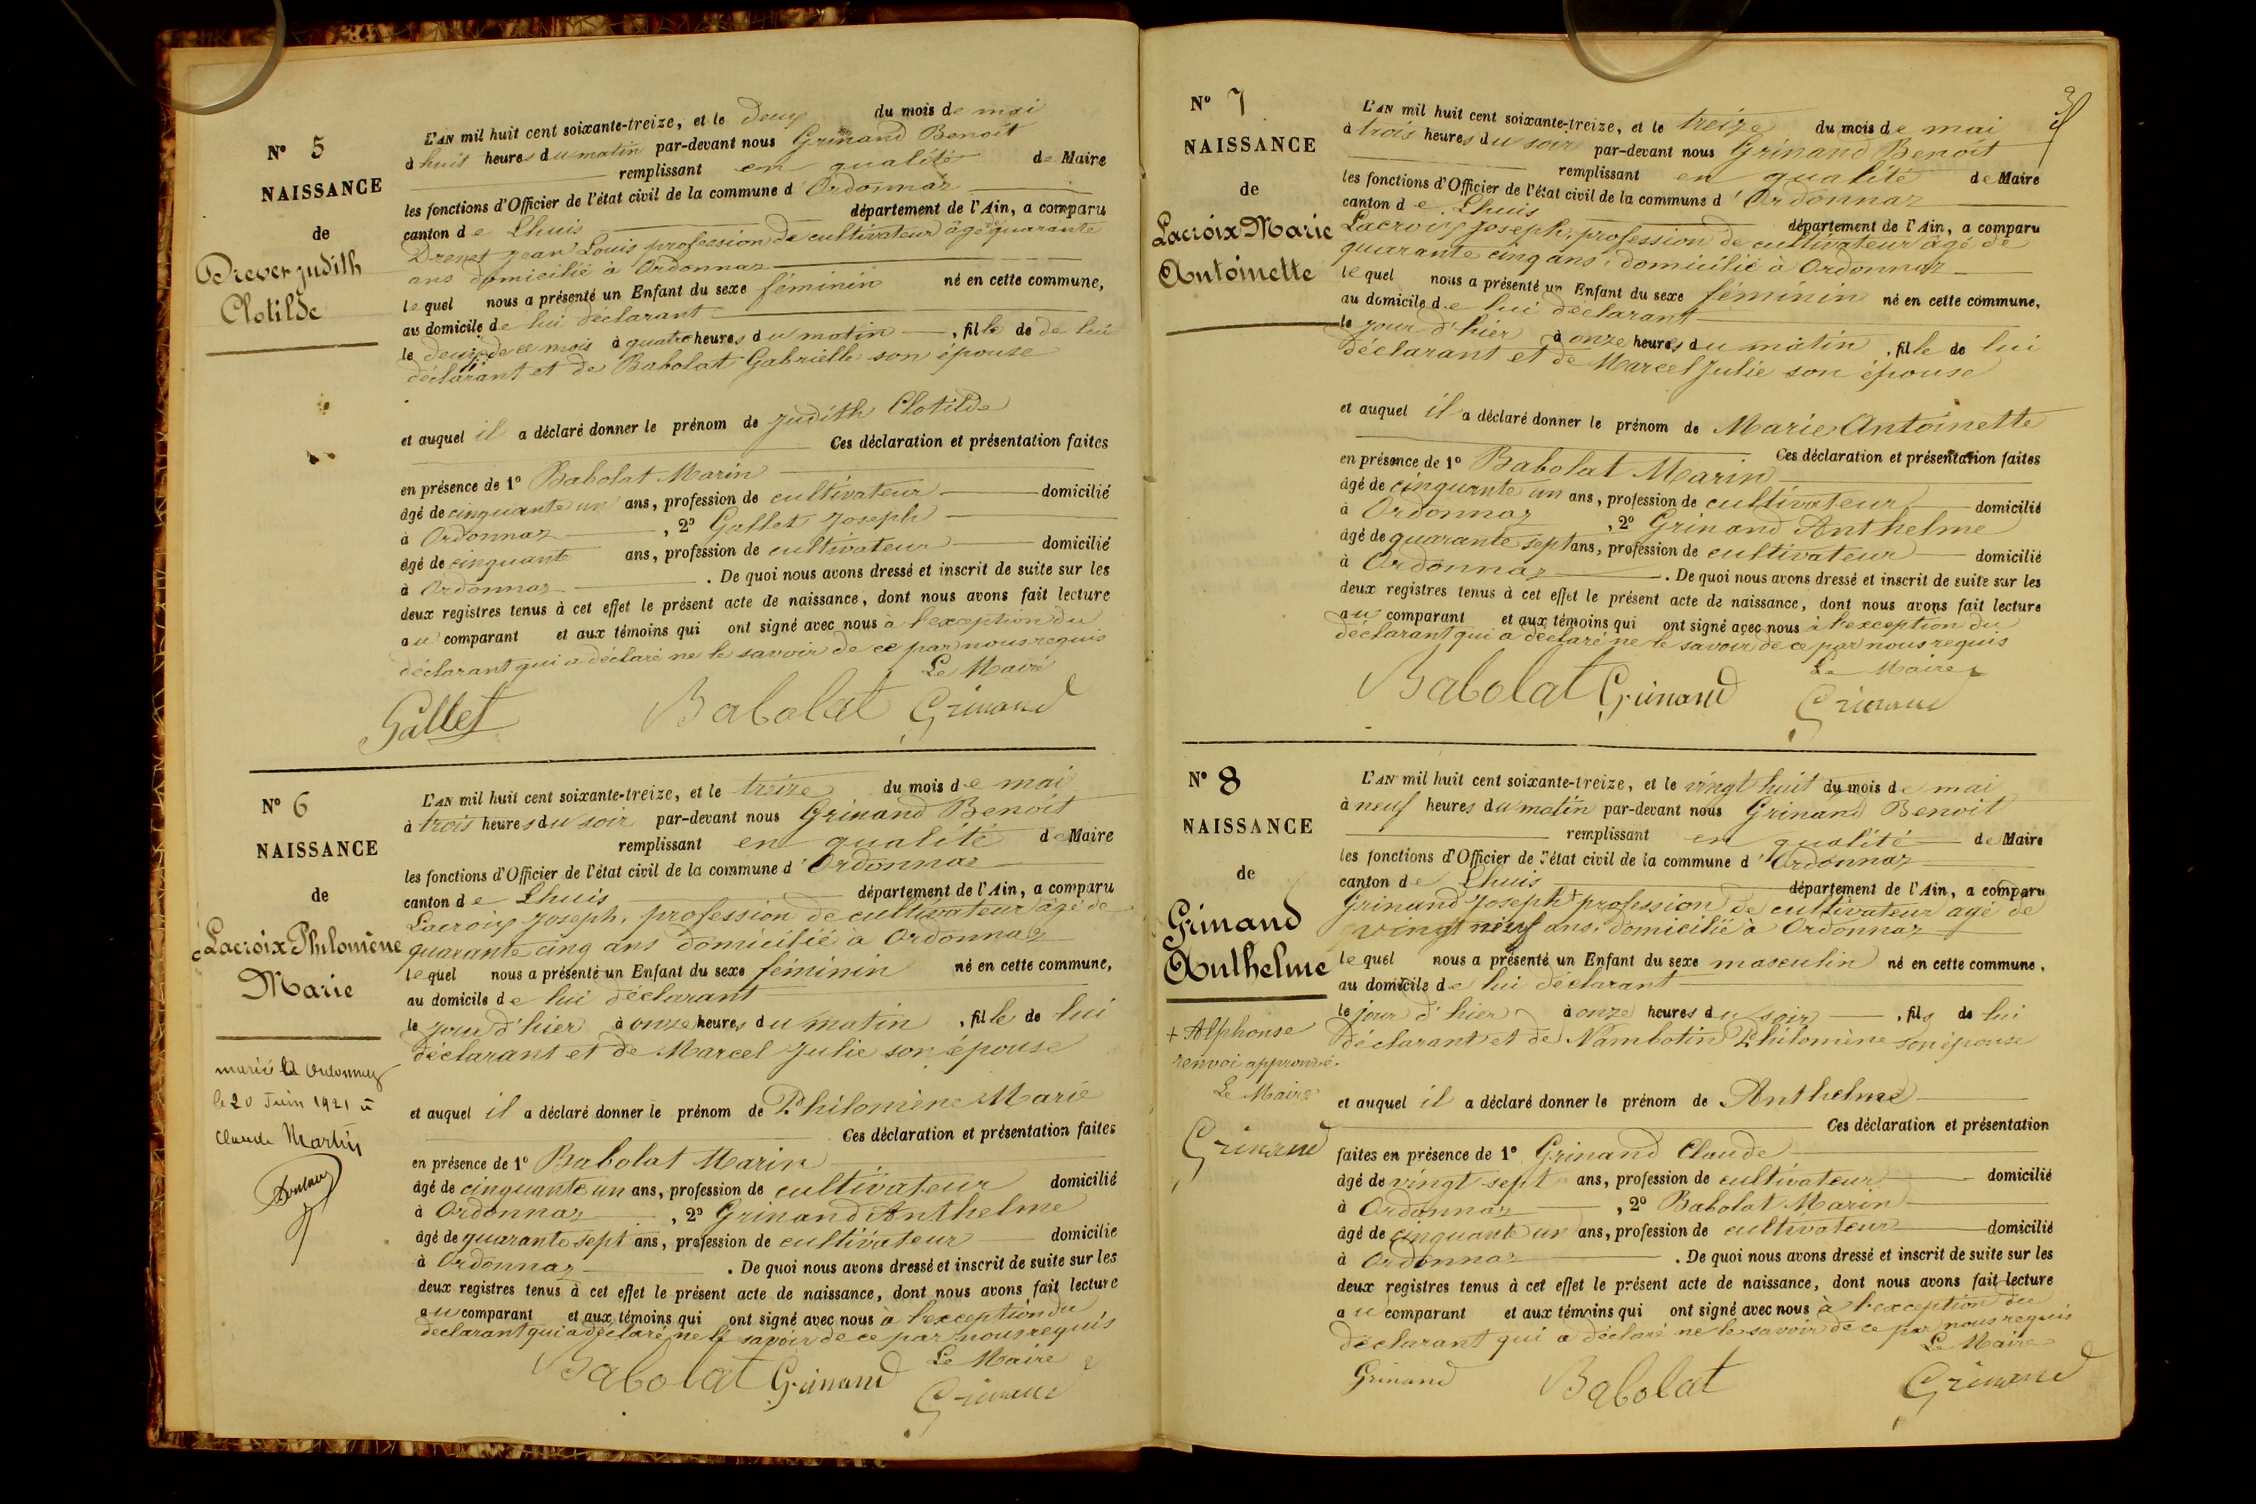 N° 5
NAISSANCE
de
Drevet Judith
Clotilde
L'AN mil huit cent soixante-treize, et le deux du mois de mai
à huit heures du matin par-devant nous Grinand Benoît
remplissant en qualité de Maire
les fonctions d'Officier de l'état civil de la commune d'Ordonnaz
canton de Lhuis département de l'Ain, a comparu
Drevet Jean Louis profession de cultivateur âgé quarante
ans domicilié à Ordonnaz
lequel nous a présenté un Enfant du sexe féminin né en cette commune,
au domicile de lui déclarant
le deux de ce mois à quatre heures du matin, fille de de lui
déclarant et de Babolat Gabrielle son épouse
et auquel il a déclaré donner le prénom de Judith Clotilde
Ces déclaration et présentation faites
en présence de 1° Babolat Marin
âgé de cinquante un ans, profession de cultivateur domicilié
à Ordonnaz, 2° Gallet Joseph
âgé de cinquante ans, profession de cultivateur domicilié
à Ordonnaz. De quoi nous avons dressé et inscrit de suite sur les
deux registres tenus à cet effet le présent acte de naissance, dont nous avons fait lecture
au comparant et aux témoins qui ont signé avec nous à l'exception du
déclarant qui a déclaré ne le savoir de ce par nous requis
Le Maire
Gallet Babolat Grinand
N° 6
NAISSANCE
de
Lacroix Philomène
Marie
marié à Ordonnaz
le 20 Juin 1921 à
Claude Martin
L'AN mil huit cent soixante-treize, et le treize du mois de mai
à trois heures du soir par-devant nous Grinand Benoît
remplissant en qualité de Maire
les fonctions d'Officier de l'état civil de la commune d'Ordonnaz
canton de Lhuis département de l'Ain, a comparu
Lacroix Joseph, profession de cultivateur âgé de
quarante cinq ans domicilié à Ordonnaz
lequel nous a présenté un Enfant du sexe féminin né en cette commune,
au domicile de lui déclarant
le jour d'hier à onze heures du matin, fille de lui
déclarant et de Marcel Julie son épouse
et auquel il a déclaré donner le prénom de Philomène Marie
Ces déclaration et présentation faites
en présence de 1° Babolat Marin
âgé de cinquante un ans, profession de cultivateur domicilié
à Ordonnaz, 2° Grinand Anthelme
âgé de quarante sept ans, profession de cultivateur domicilié
à Ordonnaz. De quoi nous avons dressé et inscrit de suite sur les
deux registres tenus à cet effet le présent acte de naissance, dont nous avons fait lecture
au comparant et aux témoins qui ont signé avec nous à l'exception du
déclarant qui a déclaré ne le savoir de ce par nous requis
Le Maire
Babolat Grinand Grinand
3
N° 7
NAISSANCE
de
Lacroix Marie
Antoinette
L'AN mil huit cent soixante-treize, et le treize du mois de mai
à trois heures du soir par-devant nous Grinand Benoît
remplissant en qualité de Maire
les fonctions d'Officier de l'état civil de la commune d'Ordonnaz
canton de Lhuis département de l'Ain, a comparu
Lacroix Joseph, profession de cultivateur âgé de
quarante cinq ans, domicilié à Ordonnaz
lequel nous a présenté un Enfant du sexe féminin né en cette commune,
au domicile de lui déclarant
le jour d'hier à onze heures du matin, fille de lui
déclarant et de Marcel Julie son épouse
et auquel il a déclaré donner le prénom de Marie Antoinette
Ces déclaration et présentation faites
en présence de 1° Babolat Marin
âgé de cinquante un ans, profession de cultivateur domicilié
à Ordonnaz, 2° Grinand Anthelme
âgé de quarante sept ans, profession de cultivateur domicilié
à Ordonnaz. De quoi nous avons dressé et inscrit de suite sur les
deux registres tenus à cet effet le présent acte de naissance, dont nous avons fait lecture
au comparant et aux témoins qui ont signé avec nous à l'exception du
déclarant qui a déclaré ne le savoir de ce par nous requis
Le Maire
Babolat Grinand Grinand
N° 8
NAISSANCE
de
Grinand
Anthelme
+ Alphonse
renvoi approuvé.
Le Maire
Grinand
L'AN mil huit cent soixante-treize, et le vingt huit du mois de mai
à neuf heures du matin par-devant nous Grinand Benoît
remplissant en qualité de Maire
les fonctions d'Officier de l'état civil de la commune d'Ordonnaz
canton de Lhuis département de l'Ain, a comparu
Grinand Joseph + profession de cultivateur âgé de
vingt neuf ans, domicilié à Ordonnaz
lequel nous a présenté un Enfant du sexe masculin né en cette commune,
au domicile de lui déclarant
le jour d'hier à onze heures du soir, fils de lui
déclarant et de Nambotin Philomène son épouse
et auquel il a déclaré donner le prénom de Anthelme
Ces déclaration et présentation
faites en présence de 1° Grinand Claude
âgé de vingt sept ans, profession de cultivateur domicilié
à Ordonnaz, 2° Babolat Marin
âgé de cinquante un ans, profession de cultivateur domicilié
à Ordonnaz. De quoi nous avons dressé et inscrit de suite sur les
deux registres tenus à cet effet le présent acte de naissance, dont nous avons fait lecture
au comparant et aux témoins qui ont signé avec nous à l'exception du
déclarant qui a déclaré ne le savoir de ce par nous requis
Le Maire
Grinand Babolat Grinand